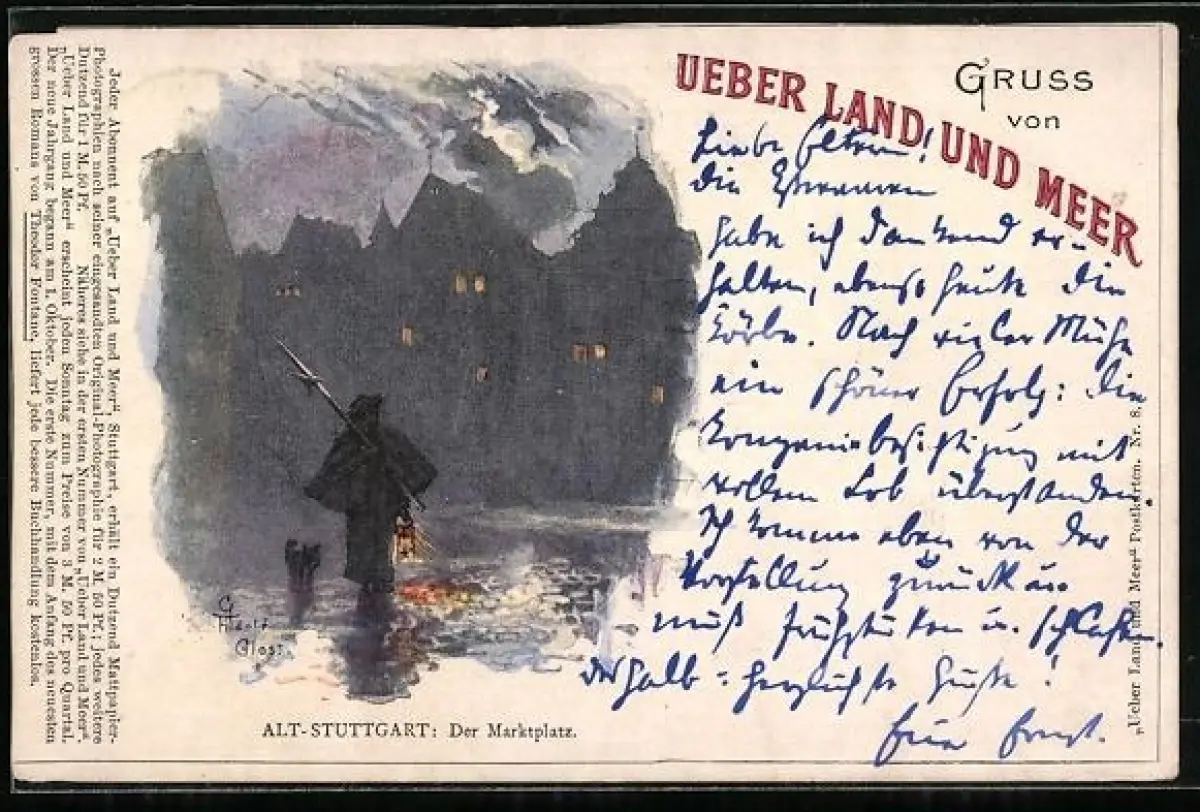 Jeder Abonnent auf „Ueber Land und Meer“, Stuttgart, erhält ein Dutzend Mattpapier-
Photographien nach seiner eingesandten Original-Photographie für 2 M. 50 Pf.; jedes weitere
Dutzend für 1 M. 50 Pf. Näheres siehe in der ersten Nummer von „Ueber Land und Meer“.
„Ueber Land und Meer“ erscheint jeden Sonntag zum Preise von 3 M. 50 Pf. pro Quartal.
Der neue Jahrgang begann am 1. Oktober. Die erste Nummer, mit dem Anfang des neuesten
grossen Romans von Theodor Fontane, liefert jede bessere Buchhandlung kostenlos.
GRUSS
von
UEBER LAND UND MEER
Liebe Eltern!
die
habe ich dankend er-
halten, ebenso heute die
Körbe. Nach vieler Mühe
ein schöner Erfolg: die
Kompaniebesichtigung mit
vollem Lob überstanden.
Ich komme eben von der
Vorstellung zurück u.
muß frühstücken u. schlafen.
deshalb: herzlichste Grüße!
Euer Ernst.
ALT-STUTTGART: Der Marktplatz.
„Ueber Land und Meer“ Postkarten. Nr. 8.